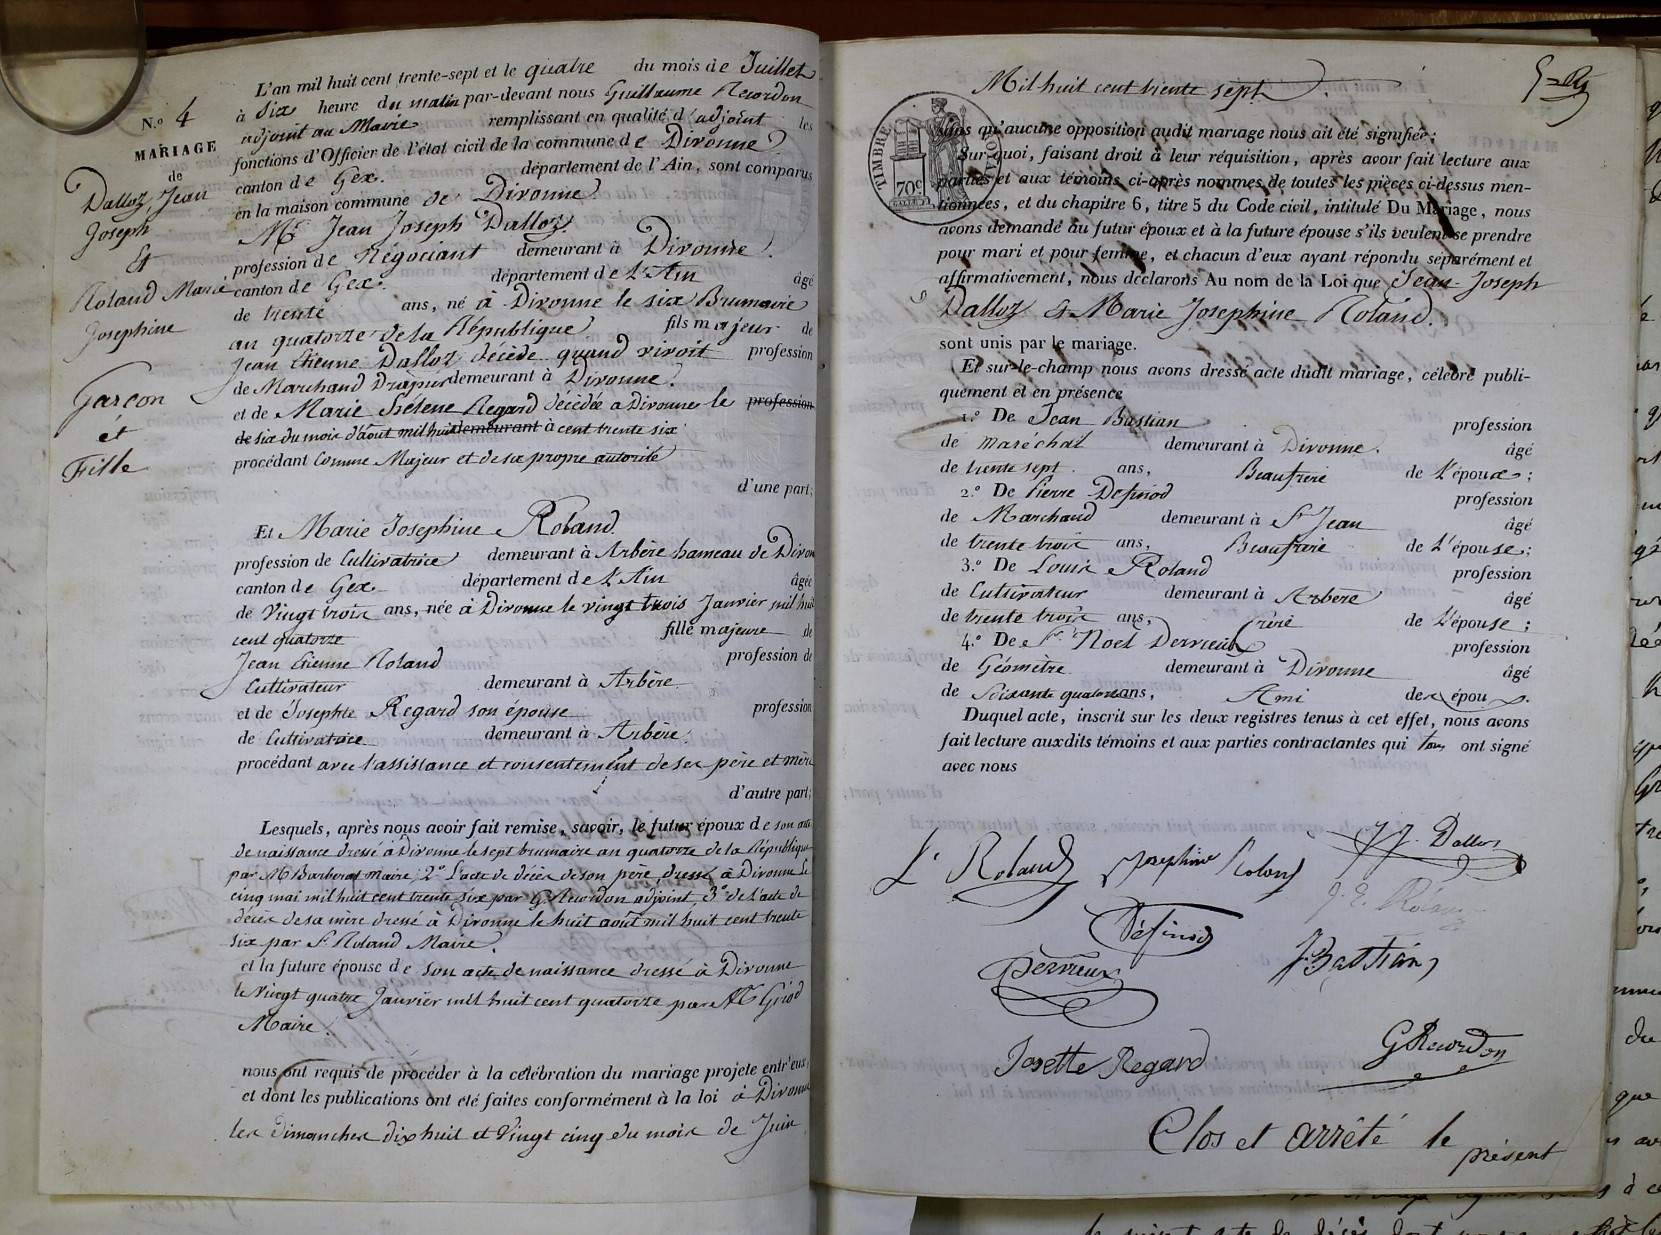 L'an mil huit cent trente-sept et le quatre du mois de Juillet
à dix heure du matin par-devant nous Guillaume Recordon
adjoint au Maire remplissant en qualité d'adjoint les
fonctions d'Officier de l'état civil de la commune de Divonne
canton de Gex. département de l'Ain, sont comparus
en la maison commune de Divonne
Mr Jean Joseph Dalloz
profession de Négociant demeurant à Divonne.
canton de Gex. département de L'Ain âgé
de trente ans, né à Divonne le six Brumaire
an quatorze de la République fils majeur de
Jean Etienne Dalloz décédé quand vivoit profession
de Marchand Drapier demeurant à Divonne.
et de Marie Hélène Regard décédée a Divonne le profession
de six du mois d'août mil huit demeurant à cent trente six
procédant comme Majeur et de sa propre autorité
d'une part;
Et Marie Josephine Roland.
profession de Cultivatrice demeurant à Arbère hameau de Divon
canton de Gex département de L'Ain âgée
de Vingt trois ans, née à Divonne le vingt trois Janvier mil huit
cent quatorze fille majeure de
Jean Etienne Roland profession de
Cultivateur demeurant à Arbère
et de Josephte Regard son épouse profession
de Cultivatrice demeurant à Arbère.
procédant avec l'assistance et consentement de ses père et mère
d'autre part;
Lesquels, après nous avoir fait remise, savoir, le futur époux de son acte
de naissance dressé à Divonne le sept brumaire an quatorze de la République
par Mr Barberat maire; 2º L'acte de décès de son père dressé à Divonne le
cinq mai mil huit cent trente six par G Recordon adjoint, 3º de L'acte de
décès de sa mère dressé à Divonne le huit août mil huit cent trente
six par Sr Roland Maire
et la future épouse de son acte de naissance dressé à Divonne
le Vingt quatre Janvier mil huit cent quatorze par Mr Girod
Maire.
nous ont requis de procéder à la célébration du mariage projeté entr'eux,
et dont les publications ont été faites conformément à la loi à Divonne
les dimanches dix huit et Vingt cinq du mois de Juin
N.º 4
MARIAGE
de
Dalloz, Jean
Joseph
Et
Roland Marie
Josephine
Garçon
et
Fille
Mil huit cent trente sept.
TIMBRE ROYAL
70c
sans qu'aucune opposition audit mariage nous ait été signifiée;
Sur quoi, faisant droit à leur réquisition, après avoir fait lecture aux
parties et aux témoins ci-après nommés de toutes les pièces ci-dessus men-
tionnées, et du chapitre 6, titre 5 du Code civil, intitulé Du Mariage, nous
avons demandé au futur époux et à la future épouse s'ils veulent se prendre
pour mari et pour femme, et chacun d'eux ayant répondu séparément et
affirmativement, nous déclarons Au nom de la Loi que Jean-Joseph
Dalloz et Marie Josephine Roland.
sont unis par le mariage.
Et sur-le-champ nous avons dressé acte dudit mariage, célébré publi-
quement et en présence
1.º De Jean Bastian profession
de maréchal demeurant à Divonne. âgé
de trente sept ans, Beaufrère de L'époux;
2.º De Pierre Définod profession
de Marchand demeurant à St Jean âgé
de trente trois ans, Beaufrère de L'épouse;
3.º De Louis Roland profession
de Cultivateur demeurant à Arbère âgé
de trente trois ans, frère de L'épouse;
4.º De Noel Derrieux profession
de Géomètre demeurant à Divonne âgé
de Soixante quatorze ans, Ami des époux.
Duquel acte, inscrit sur les deux registres tenus à cet effet, nous avons
fait lecture auxdits témoins et aux parties contractantes qui tous ont signé
avec nous
Ls Roland Josephine Roland J J. Dalloz
J. E. Roland
Définod
Derrieux J. Bastian
Josette Regard G Recordon
Clos et arrêté le
présent